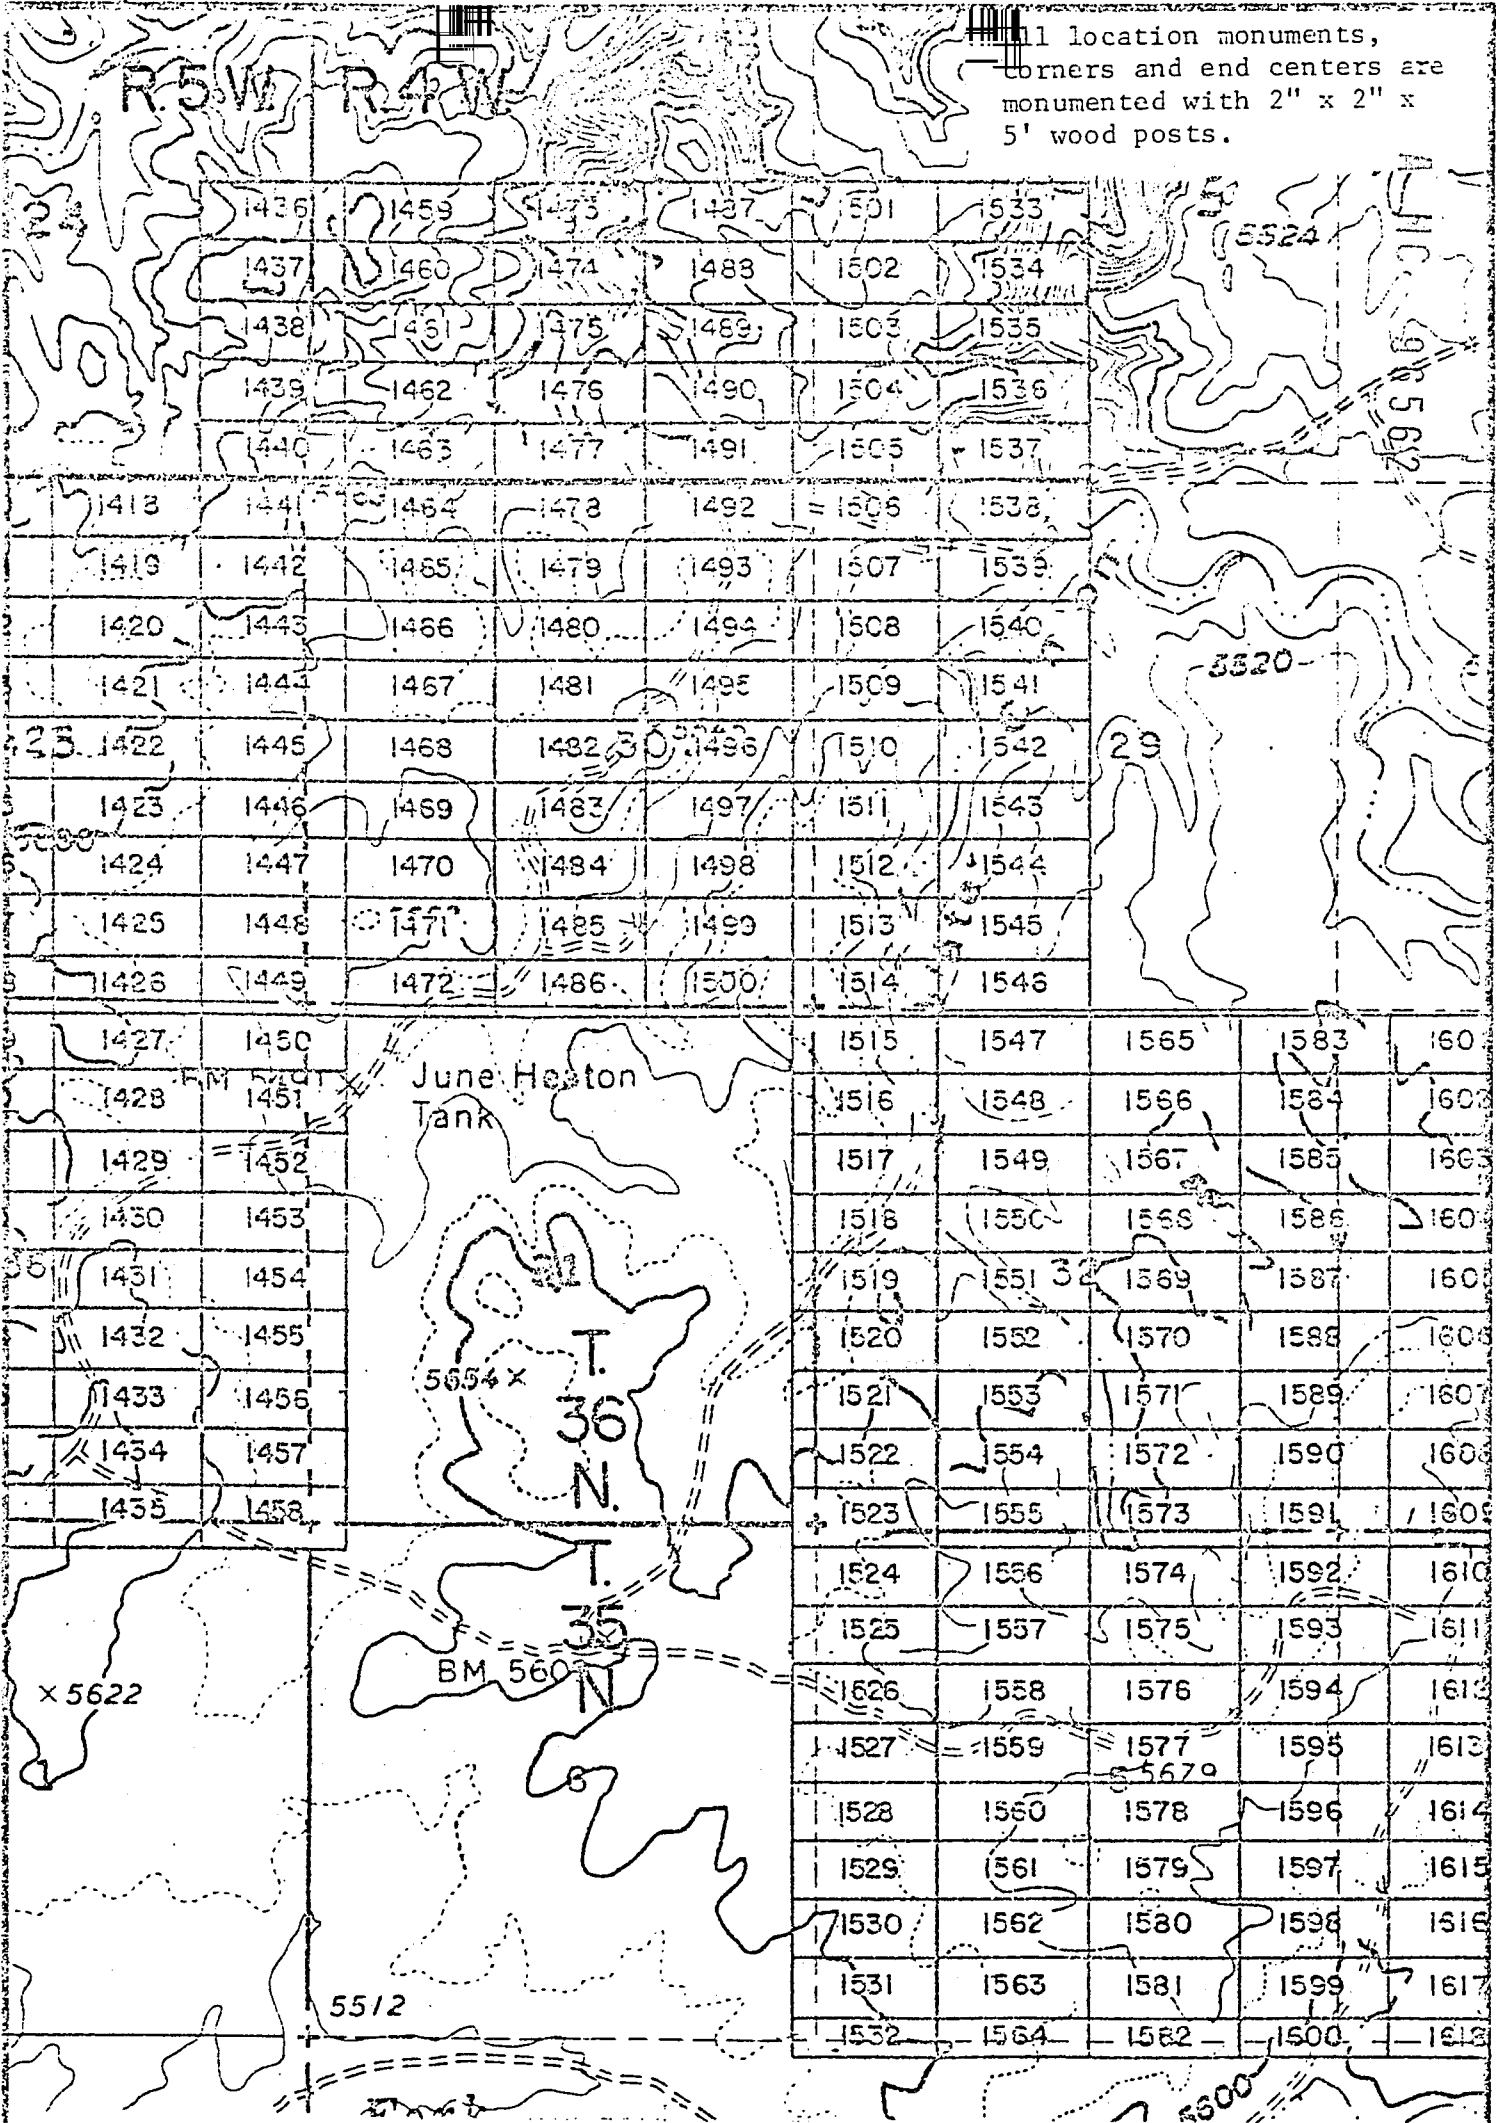 ll location monuments,
corners and end centers are
monumented with 2" x 2" x
5' wood posts.
R.5 W. R.4 W.
24 1436 1459 1473 1487 1501 1533 5524
1437 1460 1474 1488 1502 1534
1438 1461 1475 1489 1503 1535
1439 1462 1476 1490 1504 1536
1440 1463 1477 1491 1505 1537
1418 1441 1464 1478 1492 1506 1538
1419 1442 1465 1479 1493 1507 1539
1420 1443 1466 1480 1494 1508 1540
1421 1444 1467 1481 1495 1509 1541 5520
1422 1445 1468 1482 30 1496 1510 1542 29
1423 1446 1469 1483 1497 1511 1543
1424 1447 1470 1484 1498 1512 1544
1425 1448 1471 1485 1499 1513 1545
1426 1449 1472 1486 1500 1514 1546
1427 1450 1515 1547 1565 1583 160
June Heaton
Tank
1428 1451 1516 1548 1566 1584 1602
1429 1452 1517 1549 1567 1585 1603
1430 1453 1518 1550 1568 1586 160
1431 1454 1519 1551 32 1569 1587 160
1432 1455 1520 1552 1570 1588 1606
T.
36
N.
5654 ×
1433 1456 1521 1553 1571 1589 1607
1434 1457 1522 1554 1572 1590 1608
1435 1458 1523 1555 1573 1591 1609
T.
35
N
1524 1556 1574 1592 1610
1525 1557 1575 1593 1611
BM 560
× 5622
1526 1558 1576 1594 1612
1527 1559 1577 1595 1613
6 5679
1528 1560 1578 1596 1614
1529 1561 1579 1597 1615
1530 1562 1580 1598 1616
1531 1563 1581 1599 1617
5512
1532 1564 1582 1600 1618
5600